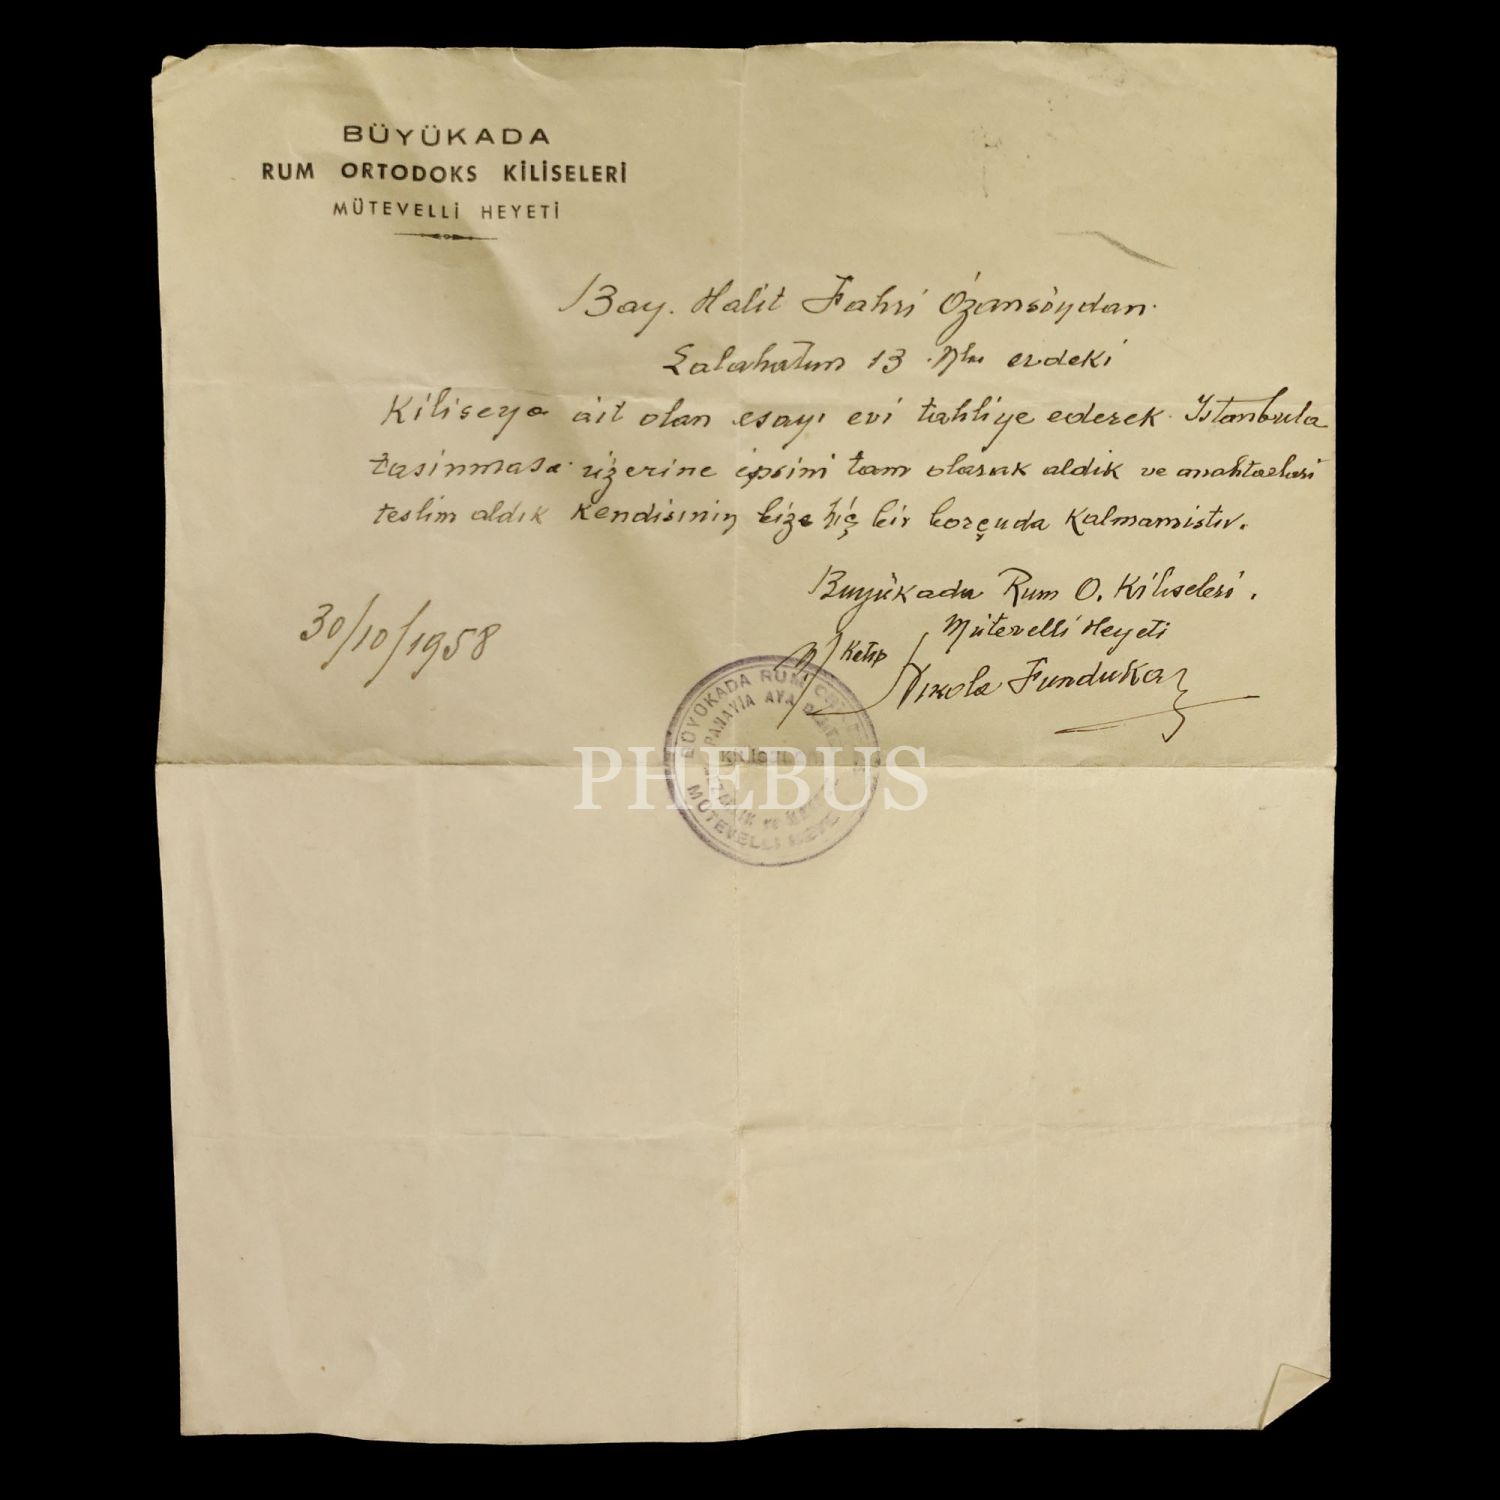 BÜYÜKADA
RUM ORTODOKS KİLİSELERİ
MÜTEVELLİ HEYETİ
Bay. Halit Fahri Ózansöydan.
Lalahatun 13 evdeki
Kiliseye ait olan esayı evi tahliye ederek Istanbula
tasinması üzerine tam olarak aldik ve anahtarlari
teslim aldık kendisinin bize hiç bir borçuda kalmamistır.
Buyükada Rum O. Kiliseleri.
Mütevelli Heyeti
Katip
Nikola Funduka
30/10/1958
BÜYÜKADA RUM
PANAYIA AYA
MÜTEVELLİ HEYE
PHEBUS